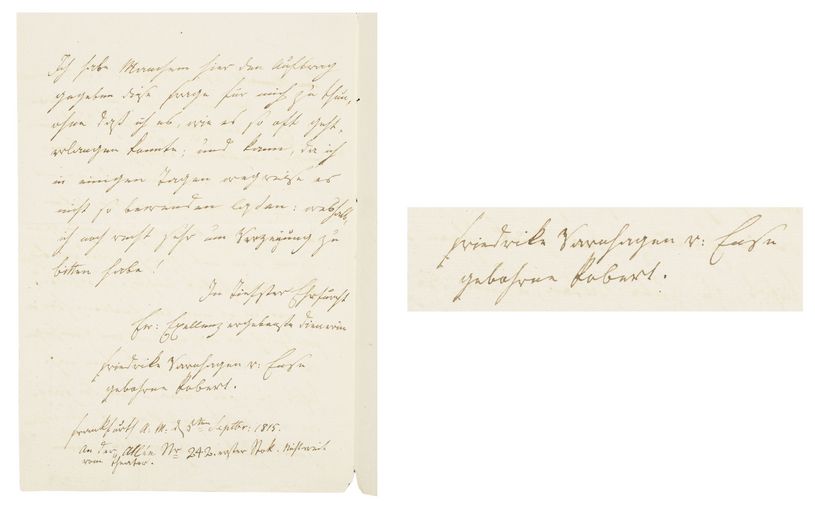 Ich habe Manchem hier den Auftrag
gegeben diese frage für mich zu thun,
ohne daß ich es, wie es so oft geht,
erlangen konnte; und kann, da ich
in einigen Tagen wegreise es
nicht so bewenden laßen: weshalb
ich noch recht sehr um Verzeihung zu
bitten habe!
In tiefster Ehrfurcht
Ew: Exellenz ergebenste dienerin
Friedrike Varnhagen v: Ense
gebohrne Robert.
Frankfurth a. M. d 5ten Septbr: 1815.
An der Allée Nr 242. erster Stok. Nichtweit
vom theater.
Friedrike Varnhagen v: Ense
gebohrne Robert.